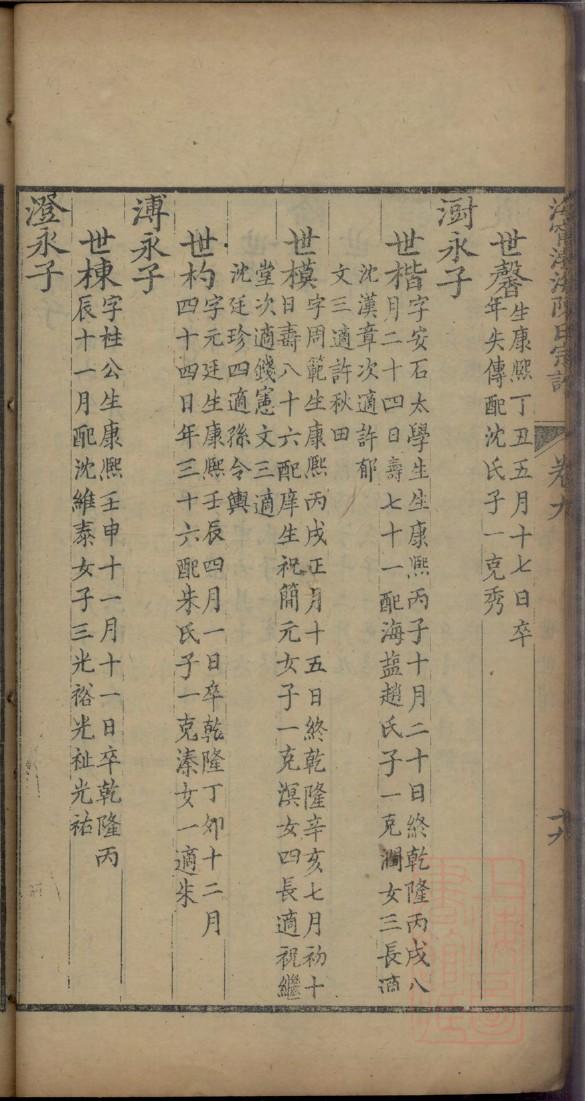 海寧渤海陳氏宗譜
卷九
世馨生康熙丁丑五月十七日卒
年失傳配沈氏子一克秀
澍永子
世楷字安石太學生生康熙丙子十月二十日終乾隆丙戌八
月二十四日壽七十一配海盐趙氏子一克澗女三長適
沈漢章次適許郁
文三適許秋田
世模字周範生康熙丙戌正月十五日終乾隆辛亥七月初十
日壽八十六配庠生祝簡元女子一克溟女四長適祝繼
堂次適錢憲文三適
沈廷珍四適孫令輿
世杓字元廷生康熙壬辰四月一日卒乾隆丁卯十二月
四十四日年三十六配朱氏子一克溱女一適朱
溥永子
世棟字柱公生康熙壬申十一月十一日卒乾隆丙
辰十一月配沈維泰女子三光裕光祉光祐
澄永子